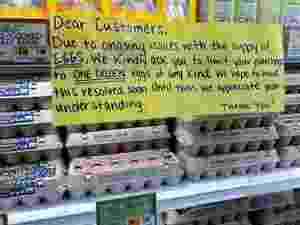 Dear Customers,
Due to ongoing issues with the supply of
Eggs, We Kindly ask you to limit your purchase
to ONE DOZEN eggs of any Kind. We hope to have
this resolved soon. Until then, we appreciate your
understanding.
Thank You!